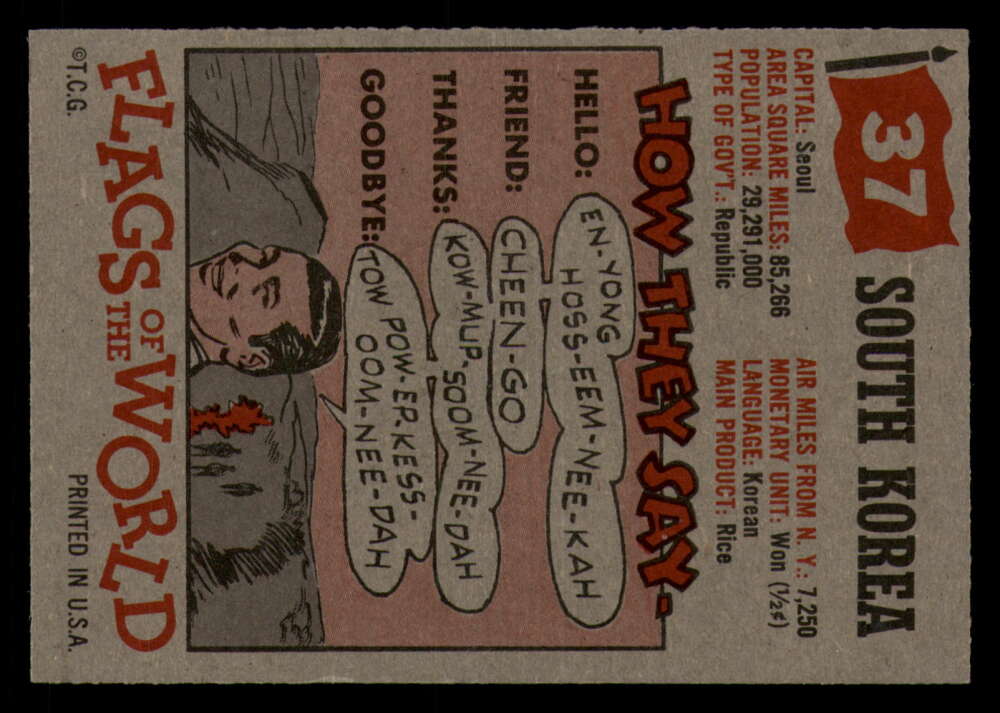 37
SOUTH KOREA
CAPITAL: Seoul
AREA SQUARE MILES: 85,266
POPULATION: 29,291,000
TYPE OF GOV'T.: Republic
AIR MILES FROM N. Y.: 7,250
MONETARY UNIT: Won (½¢)
LANGUAGE: Korean
MAIN PRODUCT: Rice
HOW THEY SAY-
HELLO: EN-YONG
HOSS-EEM-NEE-KAH
FRIEND: CHEEN-GO
THANKS: KOW-MUP-SOOM-NEE-DAH
GOODBYE: TOW POW-ER-KESS-
OOM-NEE-DAH
FLAGS OF THE WORLD
©T.C.G.
PRINTED IN U.S.A.